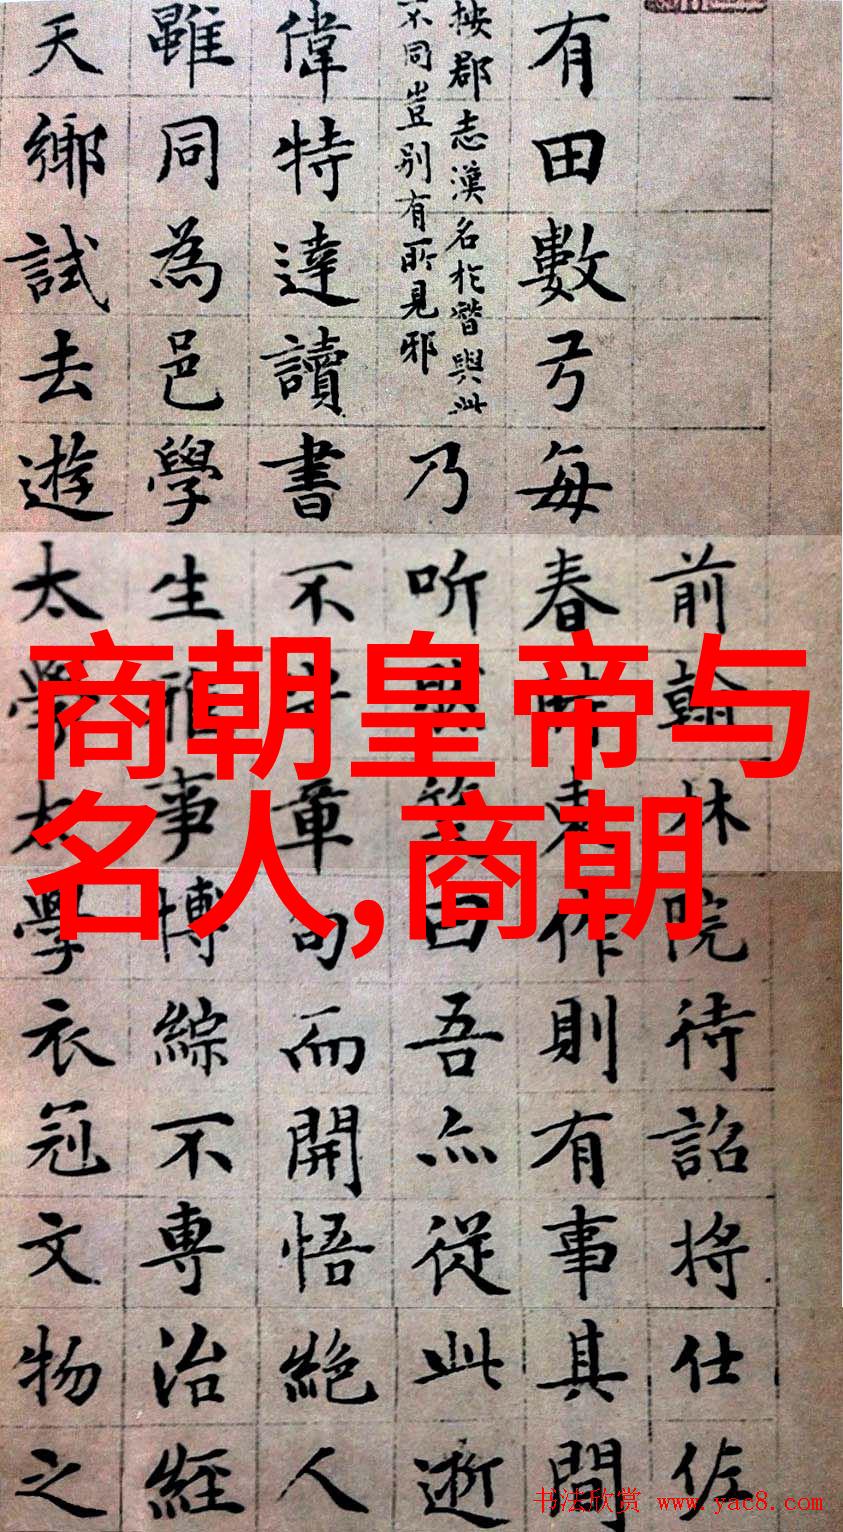 商朝皇帝与
名人,商朝
前翰林院待詔將仕佐
有田數弓每春東作則有事其間
按郡志漢名於與此
不同豈别有所見邪
乃听然笑曰吾亦從此逝
偉特達讀書不章句而開悟絕人
雖同為邑學生雅事博綜不專治經
天鄉試去遊太學太學衣冠文物之
书法欣赏 www.yac8.com